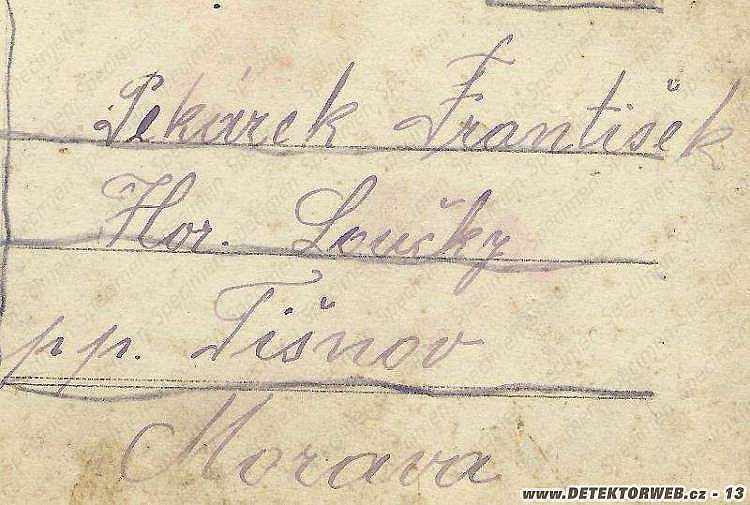 Pekárek František
Hor. Loučky
pp. Tišnov
Morava
www.DETEKTORWEB.cz - 13